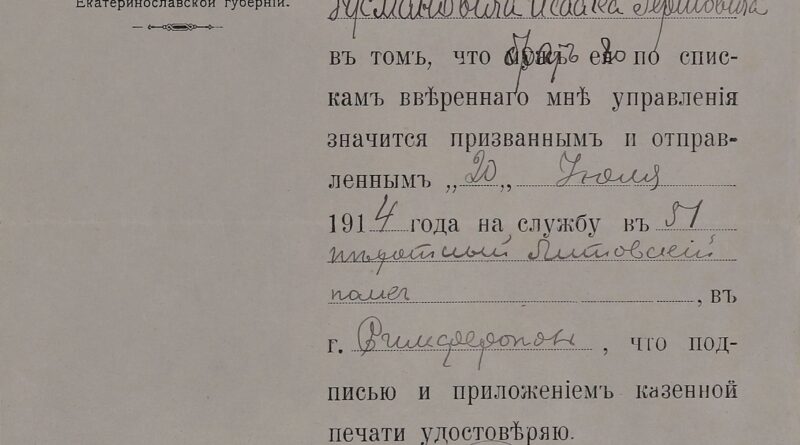 Екатеринославской губерніи.
Исаака
въ томъ, что братъ его по спис-
камъ ввѣреннаго мнѣ управленія
значится призваннымъ и отправ-
леннымъ „20„ Июля
1914 года на службу въ 51
пѣхотный Литовскій
полкъ, въ
г. Симферополь, что под-
писью и приложеніемъ казенной
печати удостовѣряю.